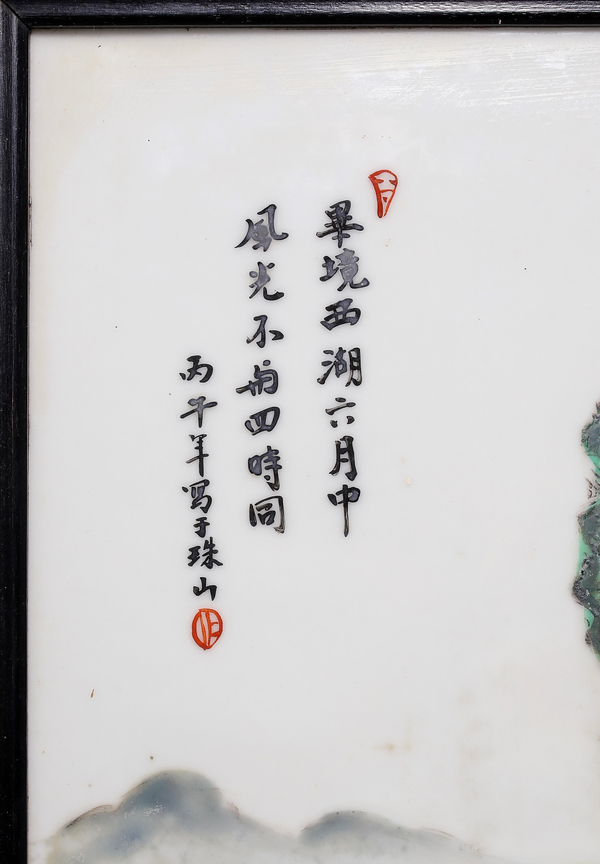 畢境西湖六月中
風光不與四時同
丙午年写于珠山